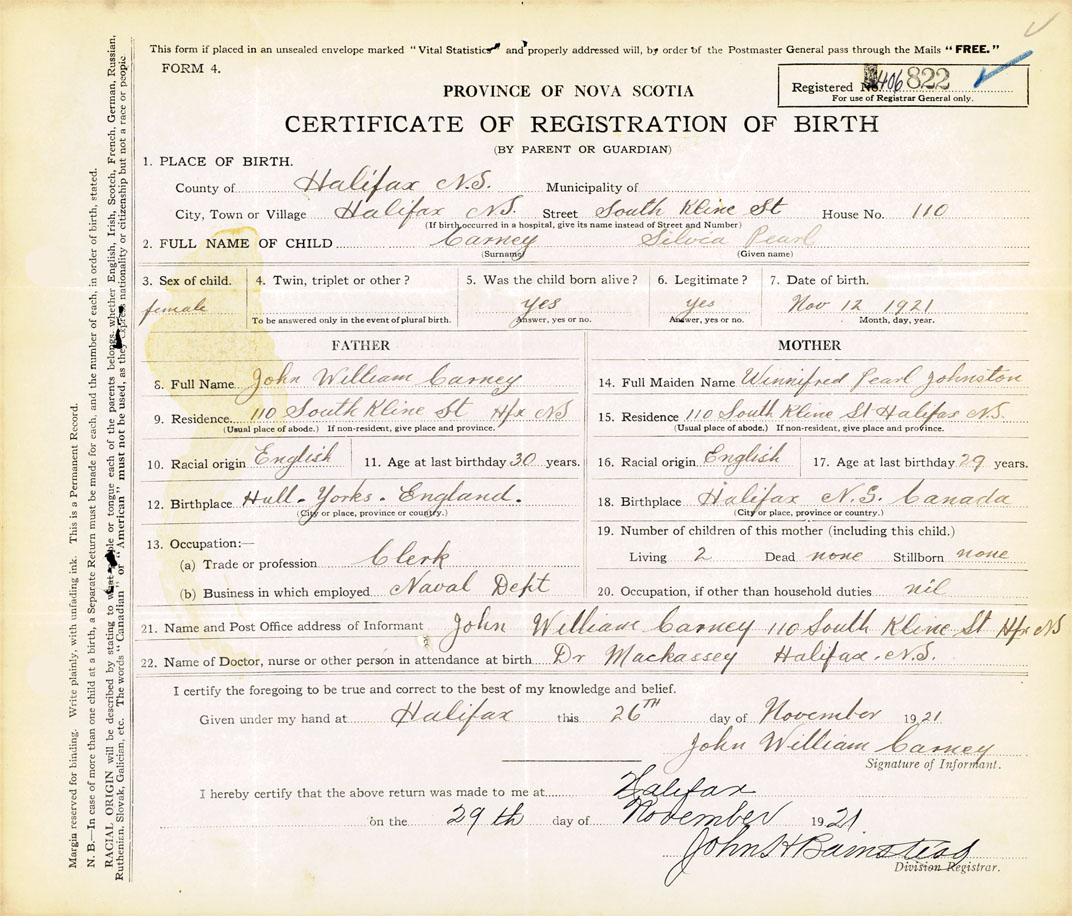 This form if placed in an unsealed envelope marked "Vital Statistics" and properly addressed will, by order of the Postmaster General pass through the Mails "FREE."
FORM 4.
Registered No. 406 822
For use of Registrar General only.
PROVINCE OF NOVA SCOTIA
CERTIFICATE OF REGISTRATION OF BIRTH
(BY PARENT OR GUARDIAN)
1. PLACE OF BIRTH.
County of Halifax N.S. Municipality of
City, Town or Village Halifax N.S. Street South Kline St House No. 110
(If birth occurred in a hospital, give its name instead of Street and Number)
2. FULL NAME OF CHILD Carney Silvia Pearl
(Surname) (Given name)
3. Sex of child. 4. Twin, triplet or other? 5. Was the child born alive? 6. Legitimate? 7. Date of birth.
female yes yes Nov 12 1921
To be answered only in the event of plural birth. Answer, yes or no. Answer, yes or no. Month, day, year.
FATHER
8. Full Name John William Carney
9. Residence 110 South Kline St Hfx NS
(Usual place of abode.) If non-resident, give place and province.
10. Racial origin English 11. Age at last birthday 30 years.
12. Birthplace Hull - Yorks - England.
(City or place, province or country.)
13. Occupation:—
(a) Trade or profession Clerk
(b) Business in which employed Naval Dept
MOTHER
14. Full Maiden Name Winnifred Pearl Johnston
15. Residence 110 South Kline St Halifax N.S.
(Usual place of abode.) If non-resident, give place and province.
16. Racial origin English 17. Age at last birthday 29 years.
18. Birthplace Halifax N.S. Canada
(City or place, province or country.)
19. Number of children of this mother (including this child.)
Living 2 Dead none Stillborn none
20. Occupation, if other than household duties nil
21. Name and Post Office address of Informant John William Carney 110 South Kline St Hfx NS
22. Name of Doctor, nurse or other person in attendance at birth Dr Mackassey Halifax. N.S.
I certify the foregoing to be true and correct to the best of my knowledge and belief.
Given under my hand at Halifax this 26TH day of November 1921
John William Carney
Signature of Informant.
I hereby certify that the above return was made to me at Halifax
on the 29th day of November 1921
John H
Division Registrar.
Margin reserved for binding. Write plainly, with unfading ink. This is a Permanent Record.
N. B.—In case of more than one child at a birth, a Separate Return must be made for each, and the number of each, in order of birth, stated.
RACIAL ORIGIN will be described by stating to what people or tongue each of the parents belongs, whether English, Irish, Scotch, French, German, Russian,
Ruthenian, Slovak, Galician, etc. The words "Canadian" or "American" must not be used, as they express nationality or citizenship but not a race or people